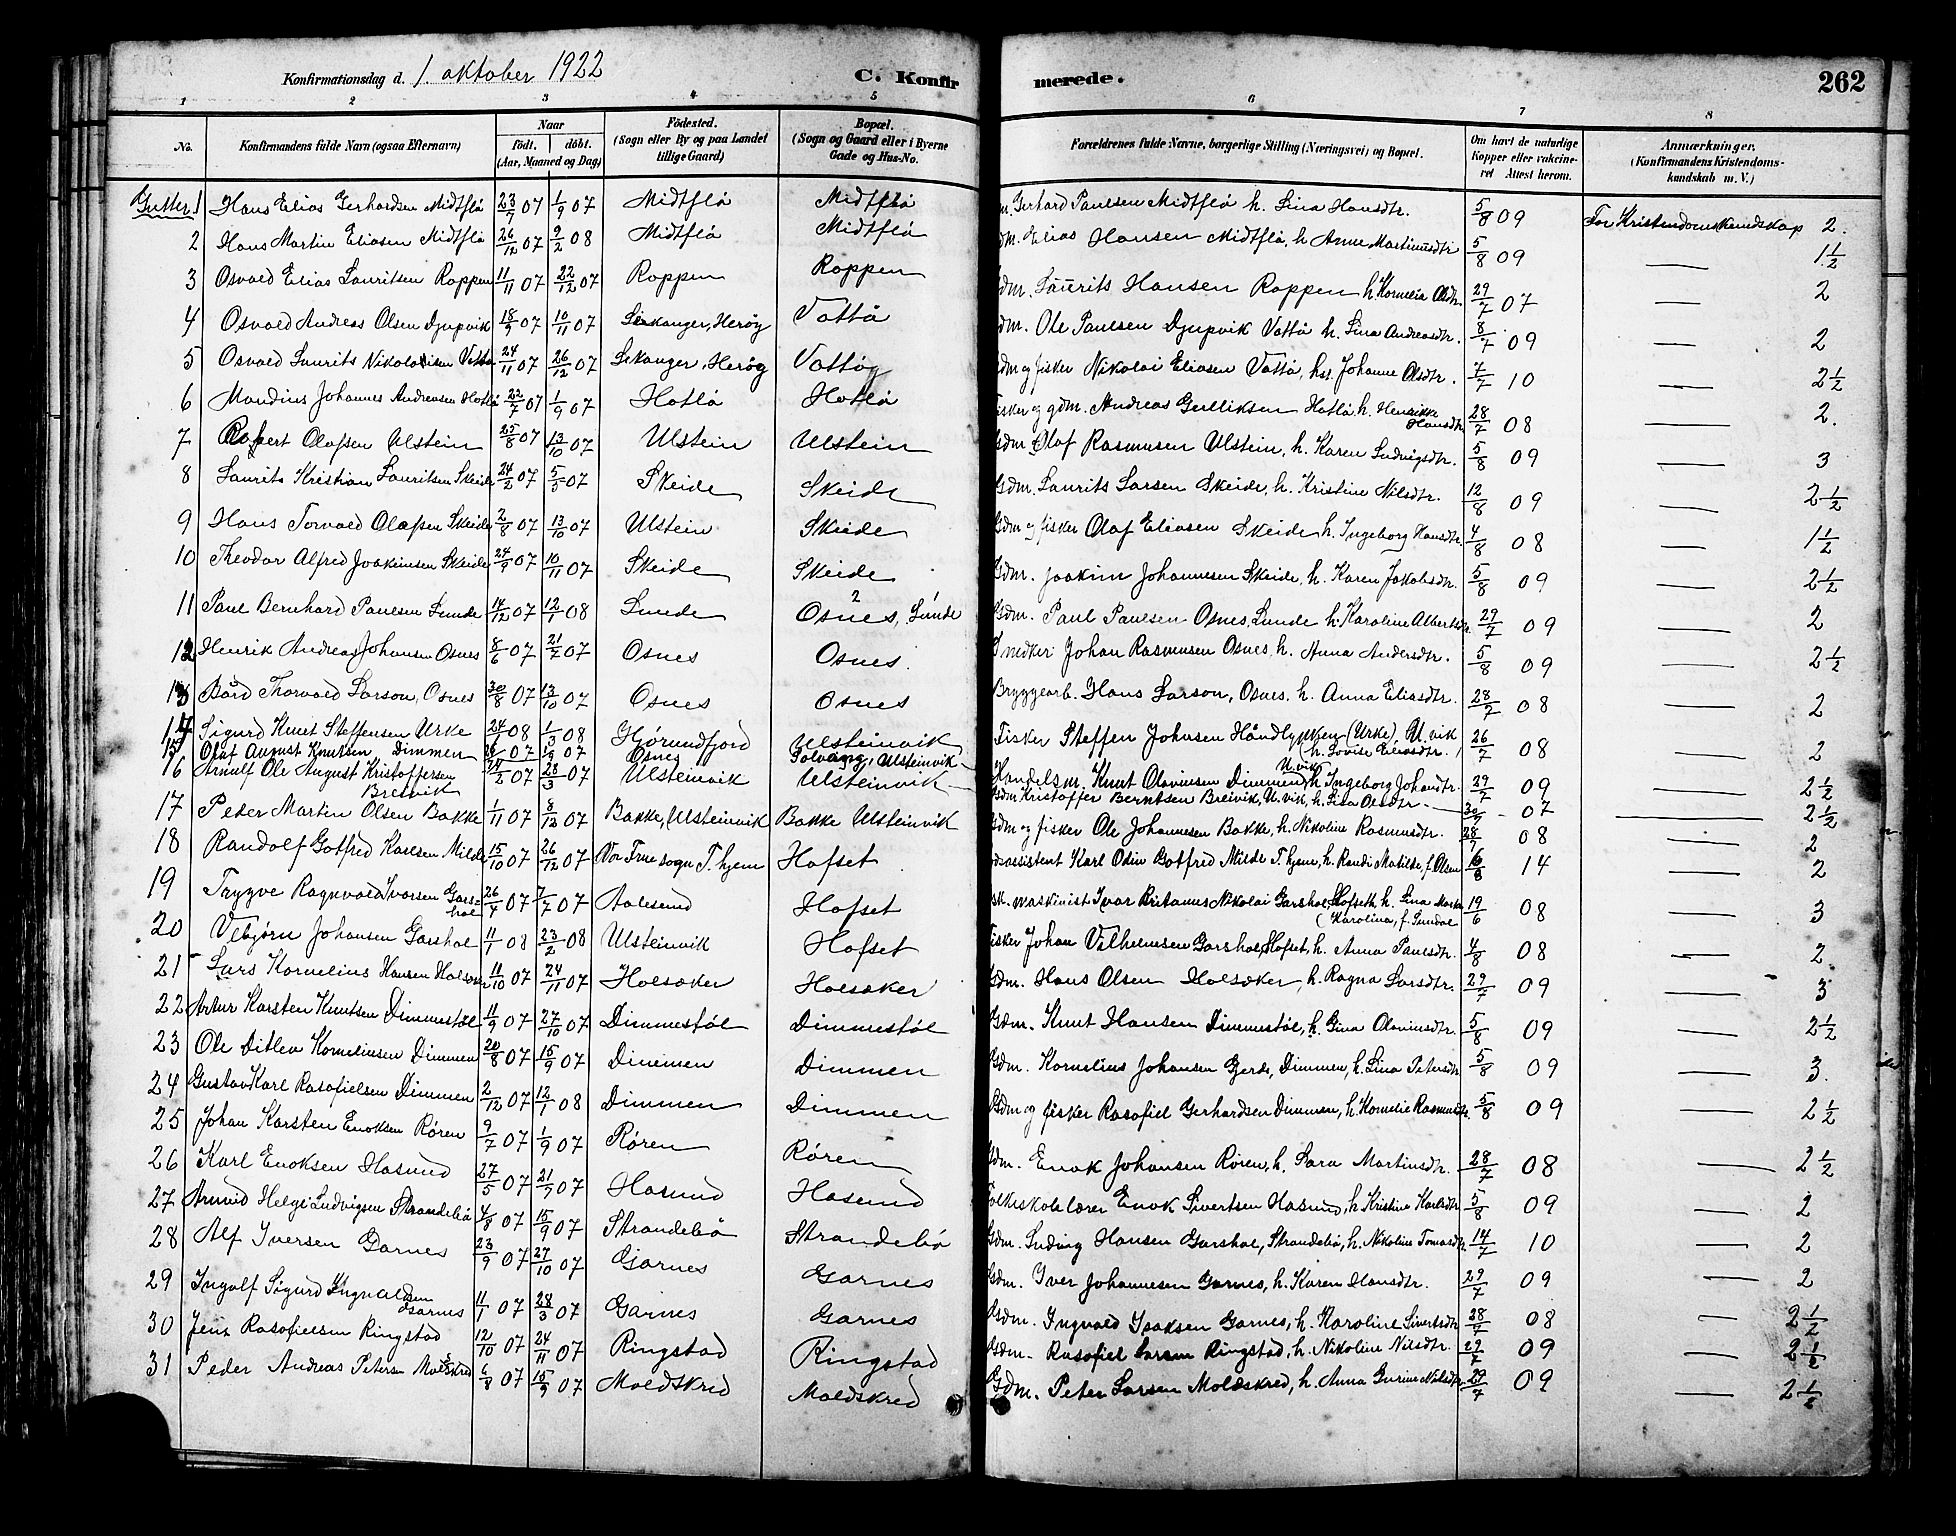 Konfirmationsdag d. 1. oktober 1922 C. Konfir merede. 262
1 2 3 4 5 6 7 8
No. Konfirmandens fulde Navn (ogsaa Efternavn) Naar født. døbt. (Aar, Maaned og Dag) Fødested. (Sogn eller By og paa Landet tillige Gaard) Bopæl. (Sogn og Gaard eller i Byerne Gade og Hus-No. Forældrenes fulde Navne, borgerlige Stilling (Næringsvei) og Bopæl. Om havt de naturlige Kopper eller vakcineret Attest herom. Anmærkninger. (Konfirmandens Kristendomskundskab m. V.)
Gutter 1 Hans Elias Gerhardsen Midtflø 23/7 07 1/9 07 Midtflø Midtflø Gerhard Paulsen Midtflø h. Lina Hansdtr. 5/8 09 For Kristendomskundskap 2.
2 Hans Martin Eliasen Midtflø 26/12 07 9/2 08 Midtflø Midtflø Gdm. Elias Hansen Midtflø, h. Anne Martinusdtr 5/8 09 — 1 1/2
3 Osvald Elias Lauritsen Roppen 11/11 07 22/12 07 Roppen Roppen Gdm. Laurits Hansen Roppen h. Kornelia Olsdtr. 29/7 07 — 2
4 Osvald Andreas Olsen Djupvik 18/9 07 10/11 07 Leikanger, Herøy Vattø Gdm. Ole Paulsen Djupvik Vattø h. Lina Andreasdtr. 8/7 09 — 2
5 Osvald Laurits Nikolaisen Vattø 24/11 07 26/12 07 Leikanger, Herøy Vattøy Gdm og fisker Nikolai Eliasen Vattø, hst. Johanne Olsdtr. 7/7 10 — 2 1/2
6 Mandius Johannes Andreasen Hatlø 22/7 07 1/9 07 Hatlø Hatlø Fisker og gdm. Andreas Gulliksen Hatlø h. Henrikke Hansdtr. 28/7 08 — 2.
7 Robert Olafsen Ulstein 25/8 07 13/10 07 Ulstein Ulstein Gdm Olaf Rasmusen Ulstein, h. Karen Ludvigsdtr. 5/8 09 — 3
8 Laurits Kristian Lauritsen Skeide 24/2 07 5/5 07 Skeide Skeide Gdm. Laurits Larsen Skeide, h. Kristine Nilsdtr. 12/8 09 — 2 1/2
9 Hans Torvald Olafsen Skeide 2/8 07 13/10 07 Ulstein Skeide Gdm og fisker Olaf Eliasen Skeide h. Ingeborg Hansdtr. 4/8 08 — 1 1/2
10 Theodor Alfred Joakimsen Skeide 24/9 07 10/11 07 Skeide Skeide Gdm. Joakim Johannesen Skeide, h. Karen Jakobsdtr. 5/8 09 — 2 1/2
11 Paul Bernhard Paulsen Lunde 14/12 07 12/1 08 Lunde Osnes, Lunde Gdm. Paul Paulsen Osnes, Lunde h. Karoline Albertsdtr. 29/7 09 — 2
12 Henrik Andreas Johansen Osnes 8/6 07 21/7 07 Osnes Osnes. Snedker Johan Rasmusen Osnes, h. Anna Andersdtr. 5/8 09 — 2 1/2
13 Bård Thorvald Larson, Osnes 30/8 07 13/10 07 Osnes Osnes Bryggearb. Hans Larson, Osnes, h. Anna Eliasdtr. 28/7 08 — 2
14 Sigurd Knut Steffensen Urke 24/1 08 1/3 08 Hjørundfjord Ulsteinvik Fisker Steffen Johnsen Håndlykken (Urke), U.vik h. Lovise Eliasdtr. 26/7 08 — 2
15 Olaf August Knutsen Dimmen 07 07 Osnes Solvang, Ulsteinvik Handelsm. Knut Olavinsen Dimmen U.vik h. Ingeborg Johandtr. 29/7 09 — 2 1/2
16 Arnulf Ole August Kristoffersen Breivik 24/2 07 28/3 07 Ulsteinvik Ulsteinvik Gdm. Kristoffer Berntsen Breivik, U.vik, h. Lina Olsdtr — 30/7 07 — 2 1/2
17 Peder Martin Olsen Bakke 1/11 07 8/12 07 Bakke, Ulsteinvik Bakke Ulsteinvik Gdm og fisker Ole Johannesen Bakke, h. Nikoline Rasmusdtr. 28/7 08 — 2
18 Randolf Gotfred Karlsen Milde 15/10 07 26/12 07 Vor Frue sogn T.hjem Hofset Karl Odin Gotfred Milde T.hjem, h. Randi Matilde, f. Olsen 14 — 2
19 Trygve Ragnvald Ivarsen Garshol 26/4 07 7/7 07 Aalesund Hofset maskinist Ivar Britanus Nikolai Garshol, Hofseth h. Lina Karolina, f. Sundal 19/6 08 — 3
20 Vebjørn Johansen Garshol 11/1 08 23/2 08 Ulsteinvik Hofset Fisker Johan Vilhelmsen Garshol, Hofset, h. Anna Paulsdtr. 4/8 08 — 2.
21 Lars Kornelius Hansen Holsaker 11/10 07 24/11 07 Holsaker Holsaker Gdm. Hans Olsen Holsaker, h. Ragna Larsdtr. 29/7 09 — 3
22 Artur Karsten Knutsen Dimmestøl 11/9 07 27/10 07 Dimmestøl Dimmestøl Gdm. Knut Hansen Dimmestøl, h. Gina Olavinsdtr. 5/8 09 — 2 1/2
23 Ole Ditlev Korneliusen Dimmen 20/8 07 15/9 07 Dimmen Dimmen Gdm. Kornelius Johansen Gjerde, Dimmen, h. Lina Petersdtr 5/8 09 — 3.
24 Gustav Karl Rasofielsen Dimmen 2/12 07 12/1 08 Dimmen Dimmen Gdm og fisker Rasofiel Gerhardsen Dimmen, h. Kornelie Rasmusdtr. 5/8 09 — 2 1/2
25 Johan Karsten Enoksen Røren 9/7 07 1/9 07 Røren Røren Gdm. Enok Johansen Røren, h. Sara Martinsdtr. 28/7 08 — 2 1/2
26 Karl Enoksen Hasund 27/5 07 21/7 07 Hasund Hasund Folkeskolelærer Enok Sivertsen Hasund, h. Kristine Karlsdtr 5/8 09 — 2
27 Arnvid Helge Ludvigsen Strandebø 4/8 07 15/9 07 Strandebø Strandebø Gdm. Ludvig Hansen Garshol, Strandebø, h. Nikoline Tomasdtr. 14/7 10 — 2
28 Alf Iversen Garnes 23/9 07 27/10 07 Garnes Garnes Gdm. Iver Johannesen Garnes, h. Karen Hansdtr. 29/7 09 — 2
29 Ingolf Sigurd Ingvaldsen Garnes 11/1 07 28/3 07 Garnes Garnes Gdm. Ingvald Isaksen Garnes, h. Karoline Sivertsdtr 28/7 08 — 2 1/2
30 Jens Rasofielsen Ringstad 12/10 07 24/11 07 Ringstad Ringstad Gdm. Rasofiel Larsen Ringstad, h. Nikoline Nilsdtr. 29/7 09 — 2 1/2
31 Peder Andreas Petersen Moldskred 6/8 07 15/9 07 Moldskred Moldskred Gdm. Peter Larsen Moldskred, h. Anna Gurine Nilsdtr 29/7 09 — 2 1/2